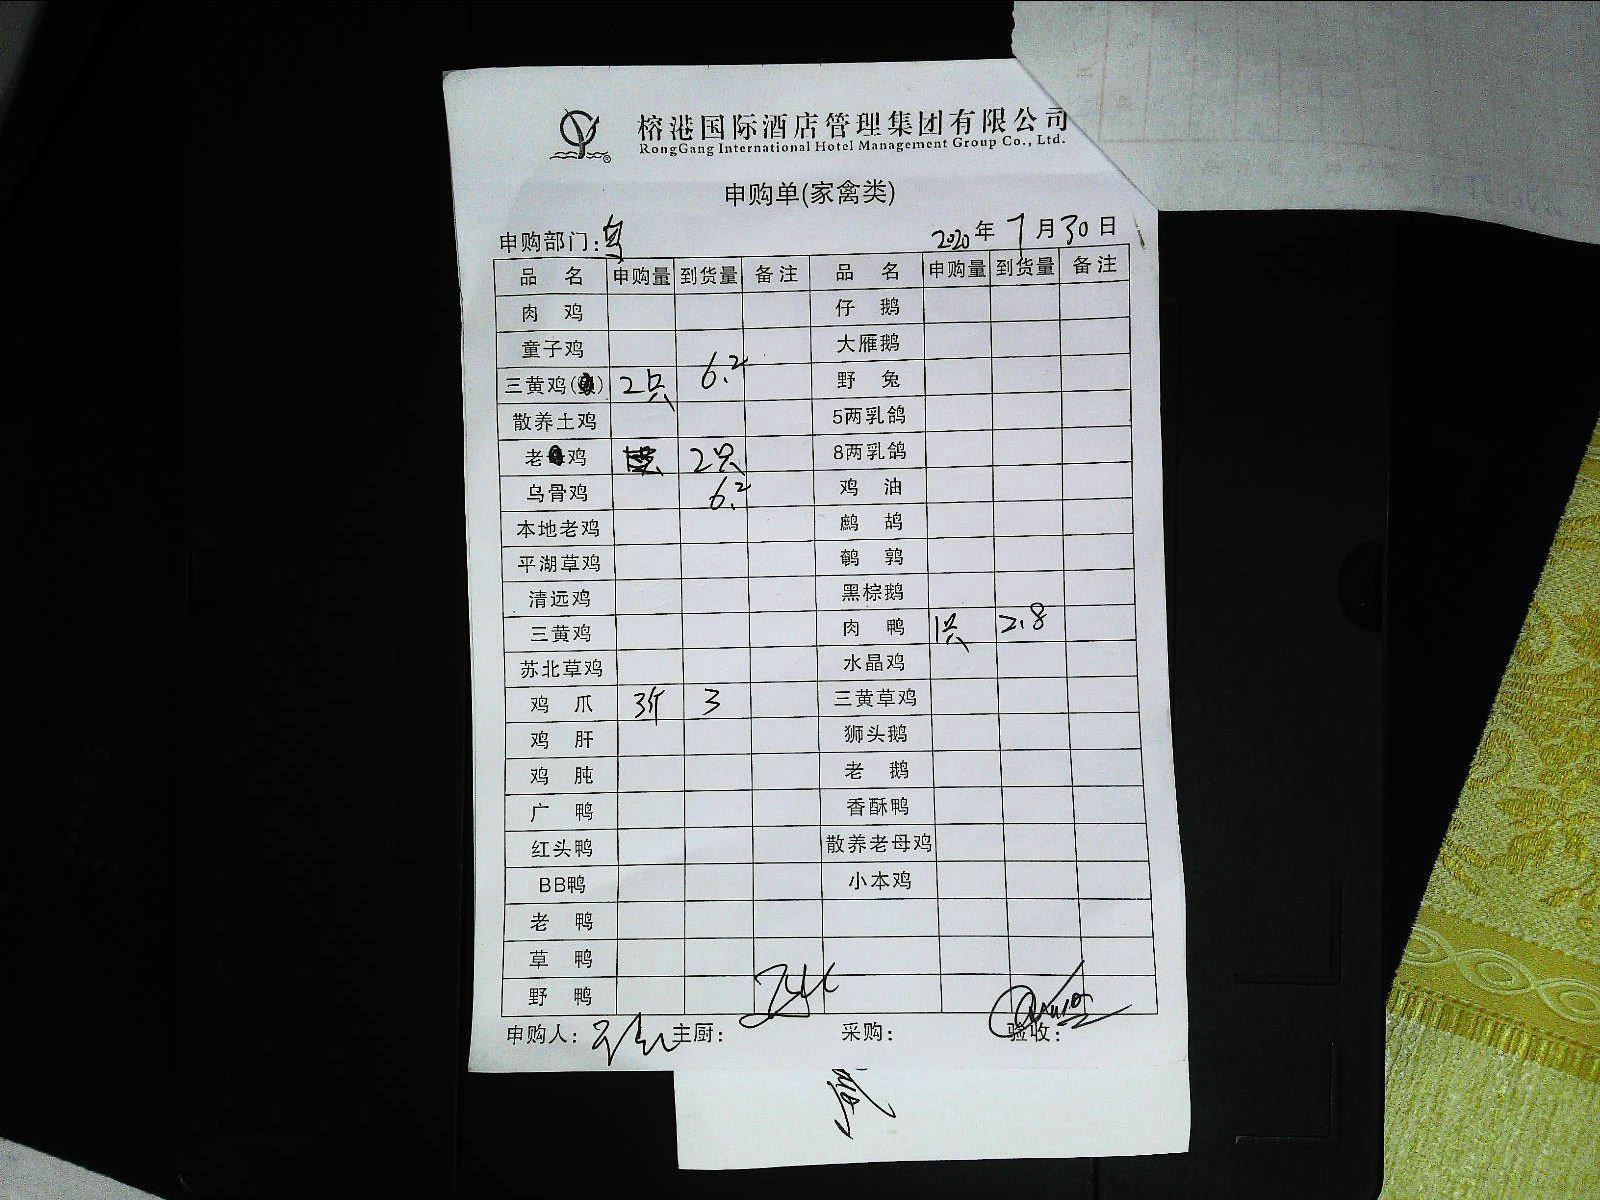 榕港国际酒店管理集团有限公司
RongGang International Hotel Management Group Co., Ltd.
申购单(家禽类)
申购部门: 2020年7月30日
品名 申购量 到货量 备注 品名 申购量 到货量 备注
肉鸡 仔鹅
童子鸡 大雁鹅
三黄鸡( ) 2只 6.2 野兔
散养土鸡 5两乳鸽
老 鸡 2只 8两乳鸽
乌骨鸡 6.2 鸡油
本地老鸡 鹧鸪
平湖草鸡 鹌鹑
清远鸡 黑棕鹅
三黄鸡 肉鸭 1只 2.8
苏北草鸡 水晶鸡
鸡爪 3斤 3 三黄草鸡
鸡肝 狮头鹅
鸡肫 老鹅
广鸭 香酥鸭
红头鸭 散养老母鸡
BB鸭 小本鸡
老鸭
草鸭
野鸭
申购人: 主厨: 采购: 验收: